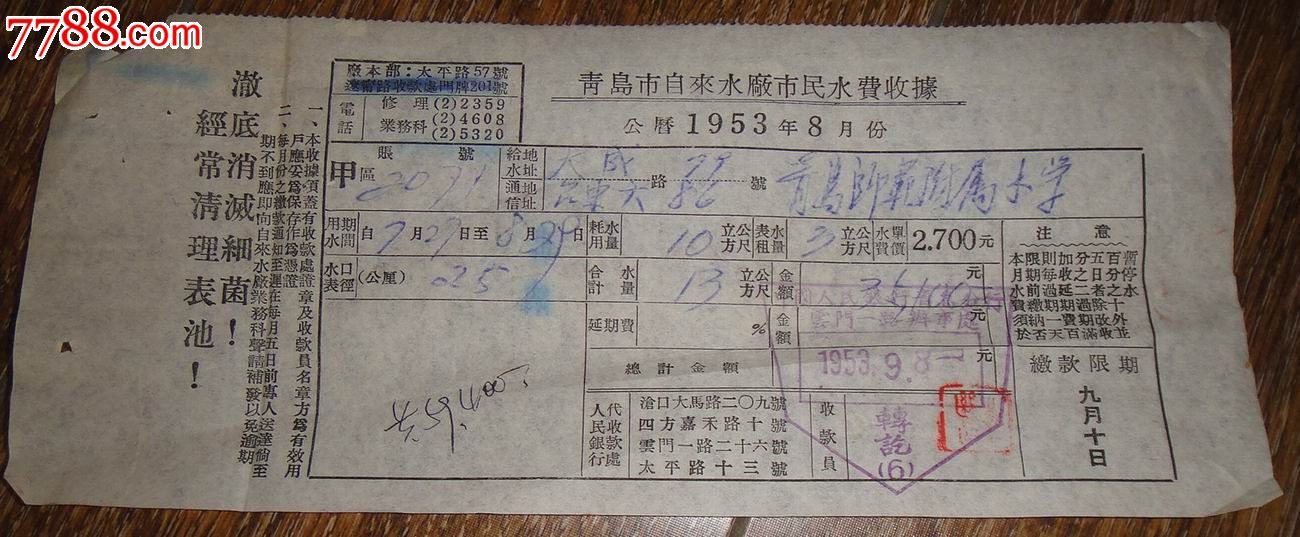 7788.com
青島市自來水廠市民水費收據
公曆 1953 年 8 月份
廠本部：太平路57號
遼甯路收款處門牌201號
電話 修理 (2)2359
業務科 (2)4608
(2)5320
甲區 賬號 2071
給水地址
通信地址
路 號
青島師範附属小学
用水期間 自 7 月 29 日至 8 月 29 日
耗用水量 10 立方公尺
表租水量 3 立方公尺
水費單價 2.700 元
水表口徑 (公厘) 025
合計水量 13 立方公尺
金額 元
延期費 % 金額 元
總計金額 元
代收款處 人民銀行
滄口大馬路二〇九號
四方嘉禾路十號
雲門一路二十六號
太平路十三號
收款員
雲門一路辦事處
1953.9.8
轉訖
(6)
注意
暫停之水
繳款限期
九月十日
一、本收據須蓋有收款處證章及收款員名章方爲有效用
戶應妥爲保存作爲憑證
二、每月份之繳款通知至遲在每月五日前專人送達倘至
期不到應即向自來水廠業務科聲請補發以免逾期
澈底消滅細菌！
經常清理表池！